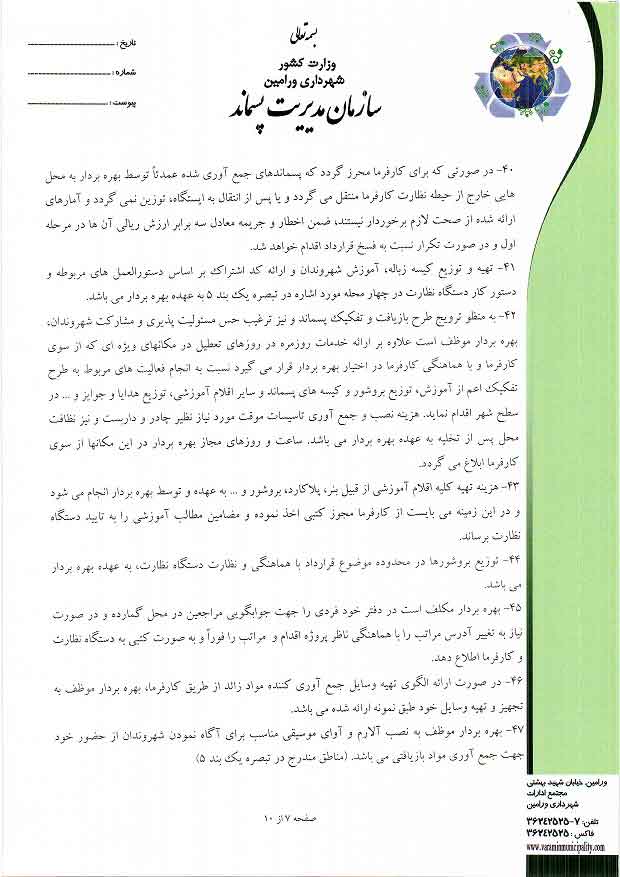 بسمه تعالی
وزارت کشور
شهرداری ورامین
سازمان مدیریت پسماند
تاریخ :
شماره :
پیوست :
۴۰- در صورتی که برای کارفرما محرز گردد که پسماندهای جمع آوری شده عمدتاً توسط بهره بردار به محل
هایی خارج از حیطه نظارت کارفرما منتقل می گردد و یا پس از انتقال به ایستگاه، توزین نمی گردد و آمارهای
ارائه شده از صحت لازم برخوردار نیستند، ضمن اخطار و جریمه معادل سه برابر ارزش ریالی آن ها در مرحله
اول و در صورت تکرار نسبت به فسخ قرارداد اقدام خواهد شد.
۴۱- تهیه و توزیع کیسه زباله، آموزش شهروندان و ارائه کد اشتراک بر اساس دستورالعمل های مربوطه و
دستور کار دستگاه نظارت در چهار محله مورد اشاره در تبصره یک بند ۵ به عهده بهره بردار می باشد.
۴۲- به منظو ترویج طرح بازیافت و تفکیک پسماند و نیز ترغیب حس مسئولیت پذیری و مشارکت شهروندان،
بهره بردار موظف است علاوه بر ارائه خدمات روزمره در روزهای تعطیل در مکانهای ویژه ای که از سوی
کارفرما و با هماهنگی کارفرما در اختیار بهره بردار قرار می گیرد نسبت به انجام فعالیت های مربوط به طرح
تفکیک اعم از آموزش، توزیع بروشور و کیسه های پسماند و سایر اقلام آموزشی، توزیع هدایا و جوایز و ... در
سطح شهر اقدام نماید. هزینه نصب و جمع آوری تاسیسات موقت مورد نیاز نظیر چادر و داربست و نیز نظافت
محل پس از تخلیه به عهده بهره بردار می باشد. ساعت و روزهای مجاز بهره بردار در این مکانها از سوی
کارفرما ابلاغ می گردد.
۴۳- هزینه تهیه کلیه اقلام آموزشی از قبیل بنر، پلاکارد، بروشور و ... به عهده و توسط بهره بردار انجام می شود
و در این زمینه می بایست از کارفرما مجوز کتبی اخذ نموده و مضامین مطالب آموزشی را به تایید دستگاه
نظارت برساند.
۴۴- توزیع بروشورها در محدوده موضوع قرارداد با هماهنگی و نظارت دستگاه نظارت، به عهده بهره بردار
می باشد.
۴۵- بهره بردار مکلف است در دفتر خود فردی را جهت جوابگویی مراجعین در محل گمارده و در صورت
نیاز به تغییر آدرس مراتب را با هماهنگی ناظر پروژه اقدام و مراتب را فوراً و به صورت کتبی به دستگاه نظارت
و کارفرما اطلاع دهد.
۴۶- در صورت ارائه الگوی تهیه وسایل جمع آوری کننده مواد زائد از طریق کارفرما، بهره بردار موظف به
تجهیز و تهیه وسایل خود طبق نمونه ارائه شده می باشد.
۴۷- بهره بردار موظف به نصب آلارم و آوای موسیقی مناسب برای آگاه نمودن شهروندان از حضور خود
جهت جمع آوری مواد بازیافتی می باشد. (مناطق مندرج در تبصره یک بند ۵)
صفحه ۷ از ۱۰
ورامین، خیابان شهید بهشتی
مجتمع ادارات
شهرداری ورامین
تلفن: ۷-۳۶۲۴۲۵۲۵
فاکس : ۳۶۲۴۲۵۲۵
www.varaminmunicipality.com